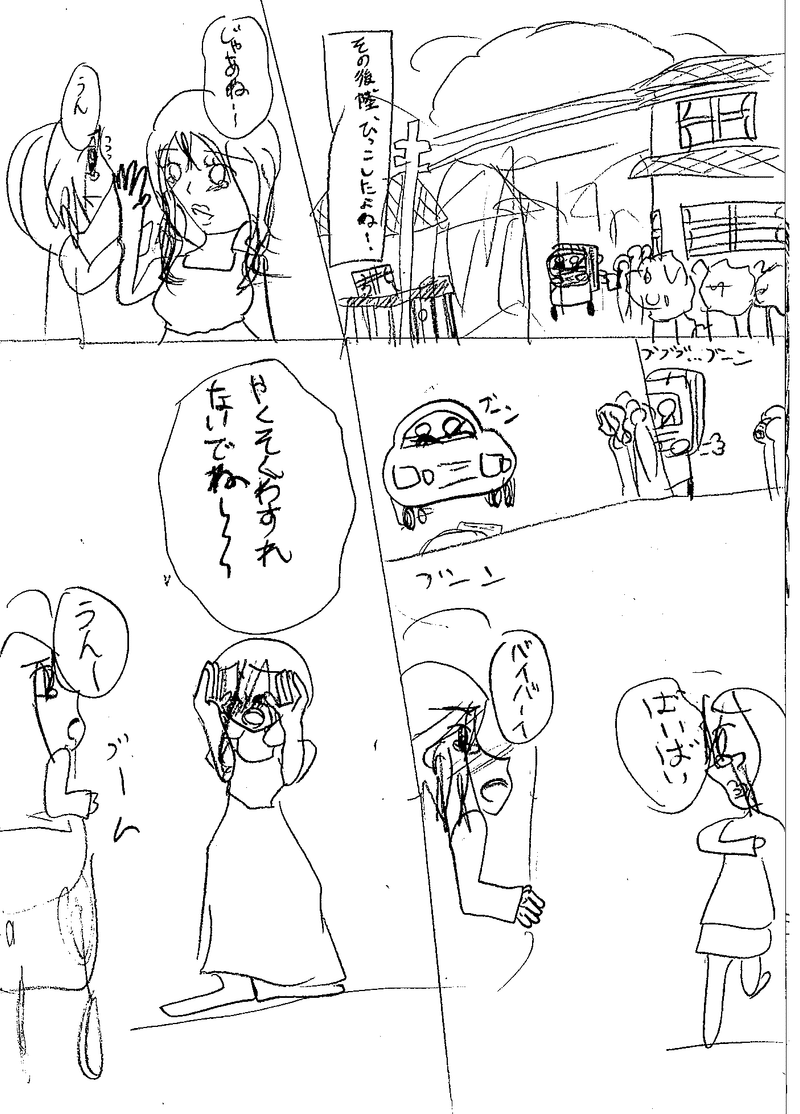 その後陸、ひっこしたよね〜、
じゃあね〜
うん
ブブブ…ブーン
ブーン
ブーン
ばいばい
バイバーイ
やくそくわすれ
ないでね〜〜〜
うんー
ブーん